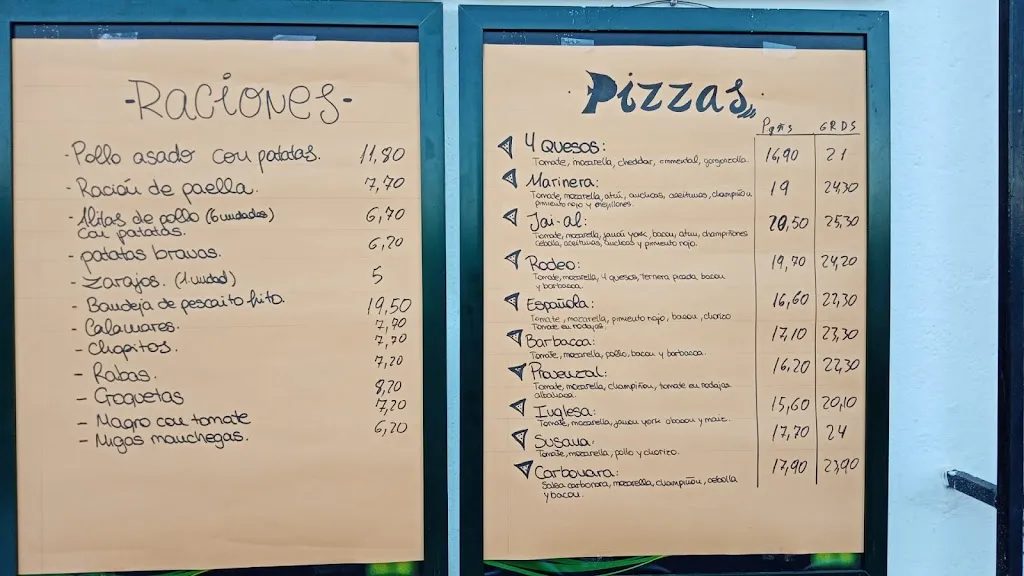 -RACIONES-
- Pollo asado con patatas. 11,80
- Ración de paella. 7,70
- Alitas de pollo (6 unidades) 6,70
con patatas.
- patatas bravas. 6,20
- Zarajos. (1 unidad) 5
- Bandeja de pescaito frito 19,50
- Calamares. 7,70
- Chopitos. 7,70
- Rabas. 7,20
- Croquetas 8,20
- Magro con tomate 7,20
- Migas manchegas. 6,20
Pizzas
Pqñs GRDS
4 Quesos: 16,90 21
Tomate, mozarella, cheddar, emmental, gorgonzolla.
Marinera: 19 24,30
Tomate, mozarella, atún, anchoas, aceitunas, champiñon
pimiento rojo y mejillones.
Jai-al: 20,50 25,30
Tomate, mozarella, jamón york, bacon, atun, champiñones
cebolla, aceitunas, anchoas y pimiento rojo.
Rodeo: 19,70 24,20
Tomate, mozarella, 4 quesos, ternera picada, bacon
y barbacoa.
Española: 16,60 22,30
Tomate, mozarella, pimiento rojo, bacon, chorizo
Tomate en rodajas.
Barbacoa: 17,10 23,30
Tomate, mozarella, pollo, bacon y barbacoa.
Provenzal: 16,20 22,30
Tomate, mozarella, champiñon, tomate en rodajas
albahaca.
Inglesa: 15,60 20,10
Tomate, mozarella, jamon york o bacon y maiz.
Susana: 17,70 24
Tomate, mozarella, pollo y chorizo.
Carbonara: 17,90 23,90
Salsa carbonara, mozarella, champiñon, cebolla
y bacon.